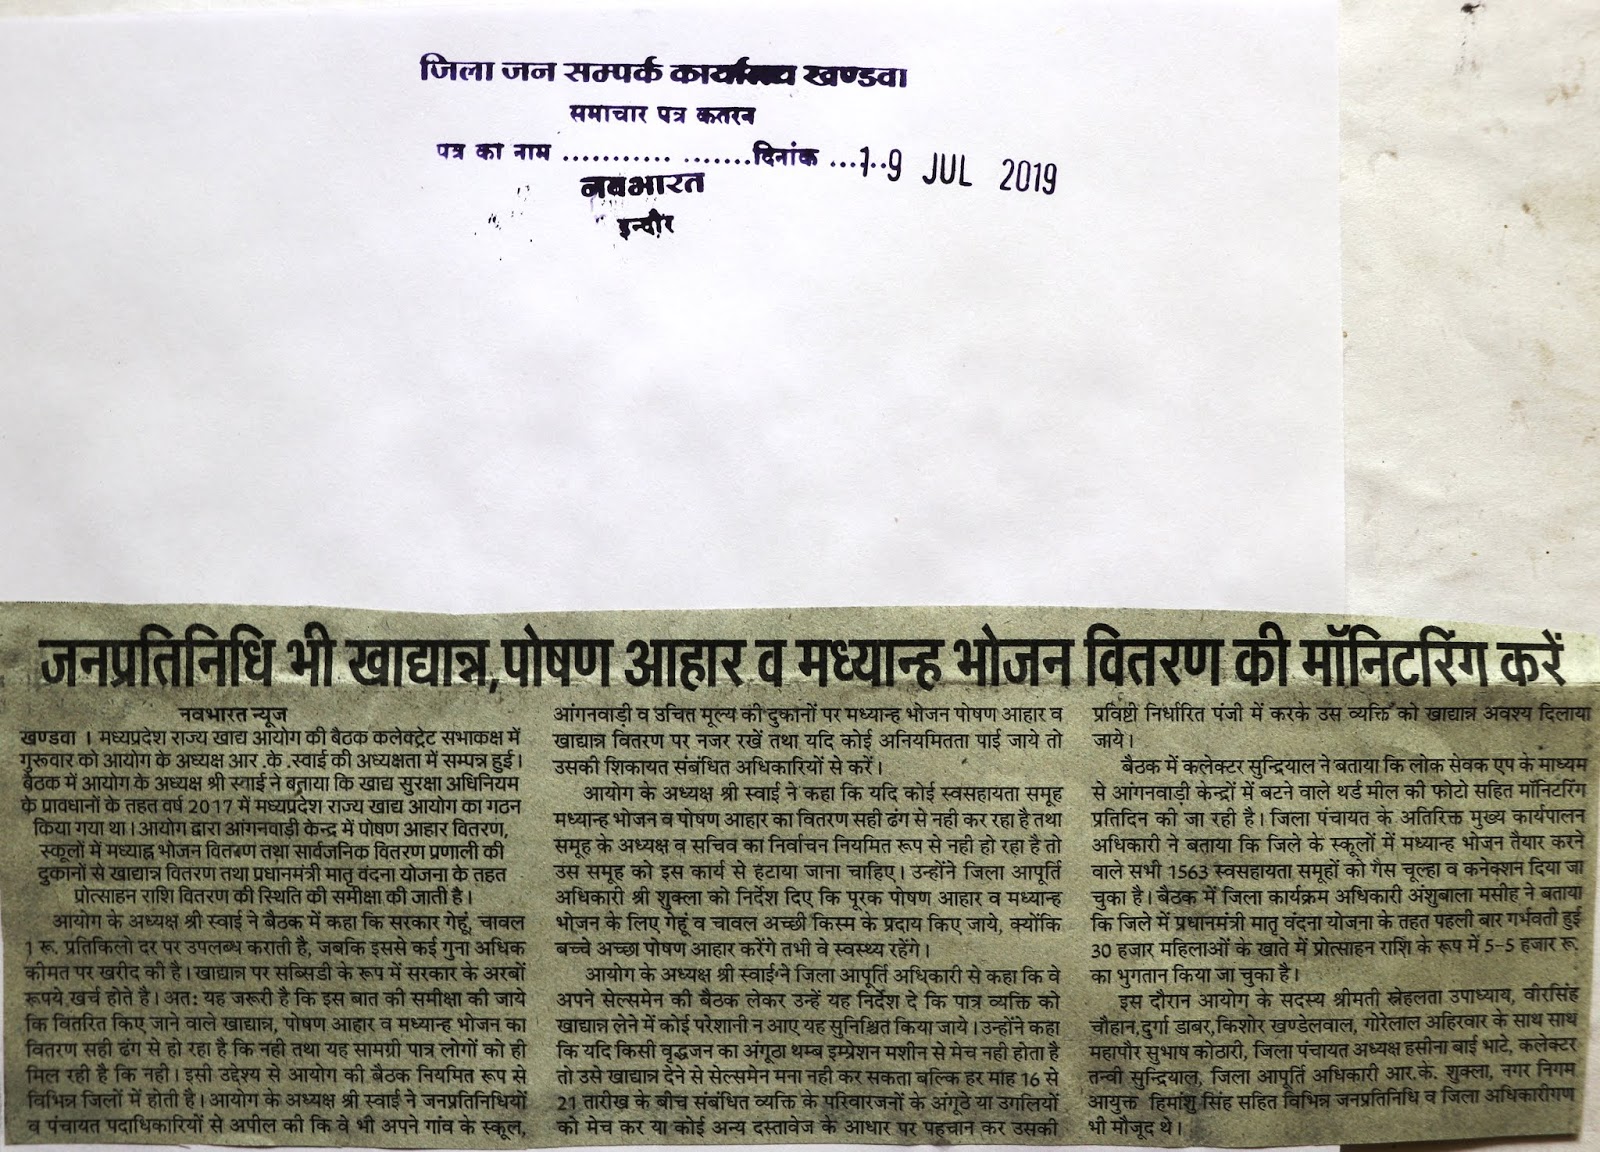 जिला जन सम्पर्क कार्यालय खण्डवा
समाचार पत्र कतरन
पत्र का नाम ........... .......दिनांक ...19 JUL 2019
नवभारत
इन्दौर
जनप्रतिनिधि भी खाद्यान्न,पोषण आहार व मध्यान्ह भोजन वितरण की मॉनिटरिंग करें
नवभारत न्यूज
खण्डवा । मध्यप्रदेश राज्य खाद्य आयोग की बैठक कलेक्ट्रेट सभाकक्ष में
गुरूवार को आयोग के अध्यक्ष आर .के .स्वाई की अध्यक्षता में सम्पन्न हुई।
बैठक में आयोग के अध्यक्ष श्री स्वाई ने बताया कि खाद्य सुरक्षा अधिनियम
के प्रावधानों के तहत वर्ष 2017 में मध्यप्रदेश राज्य खाद्य आयोग का गठन
किया गया था। आयोग द्वारा आंगनवाड़ी केन्द्र में पोषण आहार वितरण,
स्कूलों में मध्याह्न भोजन वितरण तथा सार्वजनिक वितरण प्रणाली की
दुकानों से खाद्यान्न वितरण तथा प्रधानमंत्री मातृ वंदना योजना के तहत
प्रोत्साहन राशि वितरण की स्थिति की समीक्षा की जाती है।
आयोग के अध्यक्ष श्री स्वाई ने बैठक में कहा कि सरकार गेहूं, चावल
1 रू. प्रतिकिलो दर पर उपलब्ध कराती है, जबकि इससे कई गुना अधिक
कीमत पर खरीद की है। खाद्यान्न पर सब्सिडी के रूप में सरकार के अरबों
रूपये खर्च होते है। अत: यह जरूरी है कि इस बात की समीक्षा की जाये
कि वितरित किए जाने वाले खाद्यान्न, पोषण आहार व मध्यान्ह भोजन का
वितरण सही ढंग से हो रहा है कि नही तथा यह सामग्री पात्र लोगों को ही
मिल रही है कि नही। इसी उद्देश्य से आयोग की बैठक नियमित रूप से
विभिन्न जिलों में होती है। आयोग के अध्यक्ष श्री स्वाई ने जनप्रतिनिधियों
व पंचायत पदाधिकारियों से अपील की कि वे भी अपने गांव के स्कूल,
आंगनवाड़ी व उचित मूल्य की दुकानों पर मध्यान्ह भोजन पोषण आहार व
खाद्यान्न वितरण पर नजर रखें तथा यदि कोई अनियमितता पाई जाये तो
उसकी शिकायत संबंधित अधिकारियों से करें।
आयोग के अध्यक्ष श्री स्वाई ने कहा कि यदि कोई स्वसहायता समूह
मध्यान्ह भोजन व पोषण आहार का वितरण सही ढंग से नही कर रहा है तथा
समूह के अध्यक्ष व सचिव का निर्वाचन नियमित रूप से नही हो रहा है तो
उस समूह को इस कार्य से हटाया जाना चाहिए। उन्होंने जिला आपूर्ति
अधिकारी श्री शुक्ला को निर्देश दिए कि पूरक पोषण आहार व मध्यान्ह
भोजन के लिए गेहूं व चावल अच्छी किस्म के प्रदाय किए जाये, क्योंकि
बच्चे अच्छा पोषण आहार करेंगे तभी वे स्वस्थ्य रहेंगे।
आयोग के अध्यक्ष श्री स्वाई ने जिला आपूर्ति अधिकारी से कहा कि वे
अपने सेल्समेन की बैठक लेकर उन्हें यह निर्देश दे कि पात्र व्यक्ति को
खाद्यान्न लेने में कोई परेशानी न आए यह सुनिश्चित किया जाये। उन्होंने कहा
कि यदि किसी वृद्धजन का अंगूठा थम्ब इम्प्रेशन मशीन से मेच नही होता है
तो उसे खाद्यान्न देने से सेल्समेन मना नही कर सकता बल्कि हर माह 16 से
21 तारीख के बीच संबंधित व्यक्ति के परिवारजनों के अंगूठे या उगलियों
को मेच कर या कोई अन्य दस्तावेज के आधार पर पहचान कर उसकी
प्रविष्टी निर्धारित पंजी में करके उस व्यक्ति को खाद्यान्न अवश्य दिलाया
जाये।
बैठक में कलेक्टर सुन्द्रियाल ने बताया कि लोक सेवक एप के माध्यम
से आंगनवाड़ी केन्द्रों में बटने वाले थर्ड मील की फोटो सहित मॉनिटरिंग
प्रतिदिन की जा रही है। जिला पंचायत के अतिरिक्त मुख्य कार्यपालन
अधिकारी ने बताया कि जिले के स्कूलों में मध्यान्ह भोजन तैयार करने
वाले सभी 1563 स्वसहायता समूहों को गैस चूल्हा व कनेक्शन दिया जा
चुका है। बैठक में जिला कार्यक्रम अधिकारी अंशुबाला मसीह ने बताया
कि जिले में प्रधानमंत्री मातृ वंदना योजना के तहत पहली बार गर्भवती हुई
30 हजार महिलाओं के खाते में प्रोत्साहन राशि के रूप में 5-5 हजार रू.
का भुगतान किया जा चुका है।
इस दौरान आयोग के सदस्य श्रीमती स्नेहलता उपाध्याय, वीरसिंह
चौहान,दुर्गा डाबर,किशोर खण्डेलवाल, गोरेलाल अहिरवार के साथ साथ
महापौर सुभाष कोठारी, जिला पंचायत अध्यक्ष हसीना बाई भाटे, कलेक्टर
तन्वी सुन्द्रियाल, जिला आपूर्ति अधिकारी आर.के. शुक्ला, नगर निगम
आयुक्त हिमांशु सिंह सहित विभिन्न जनप्रतिनिधि व जिला अधिकारीगण
भी मौजूद थे।